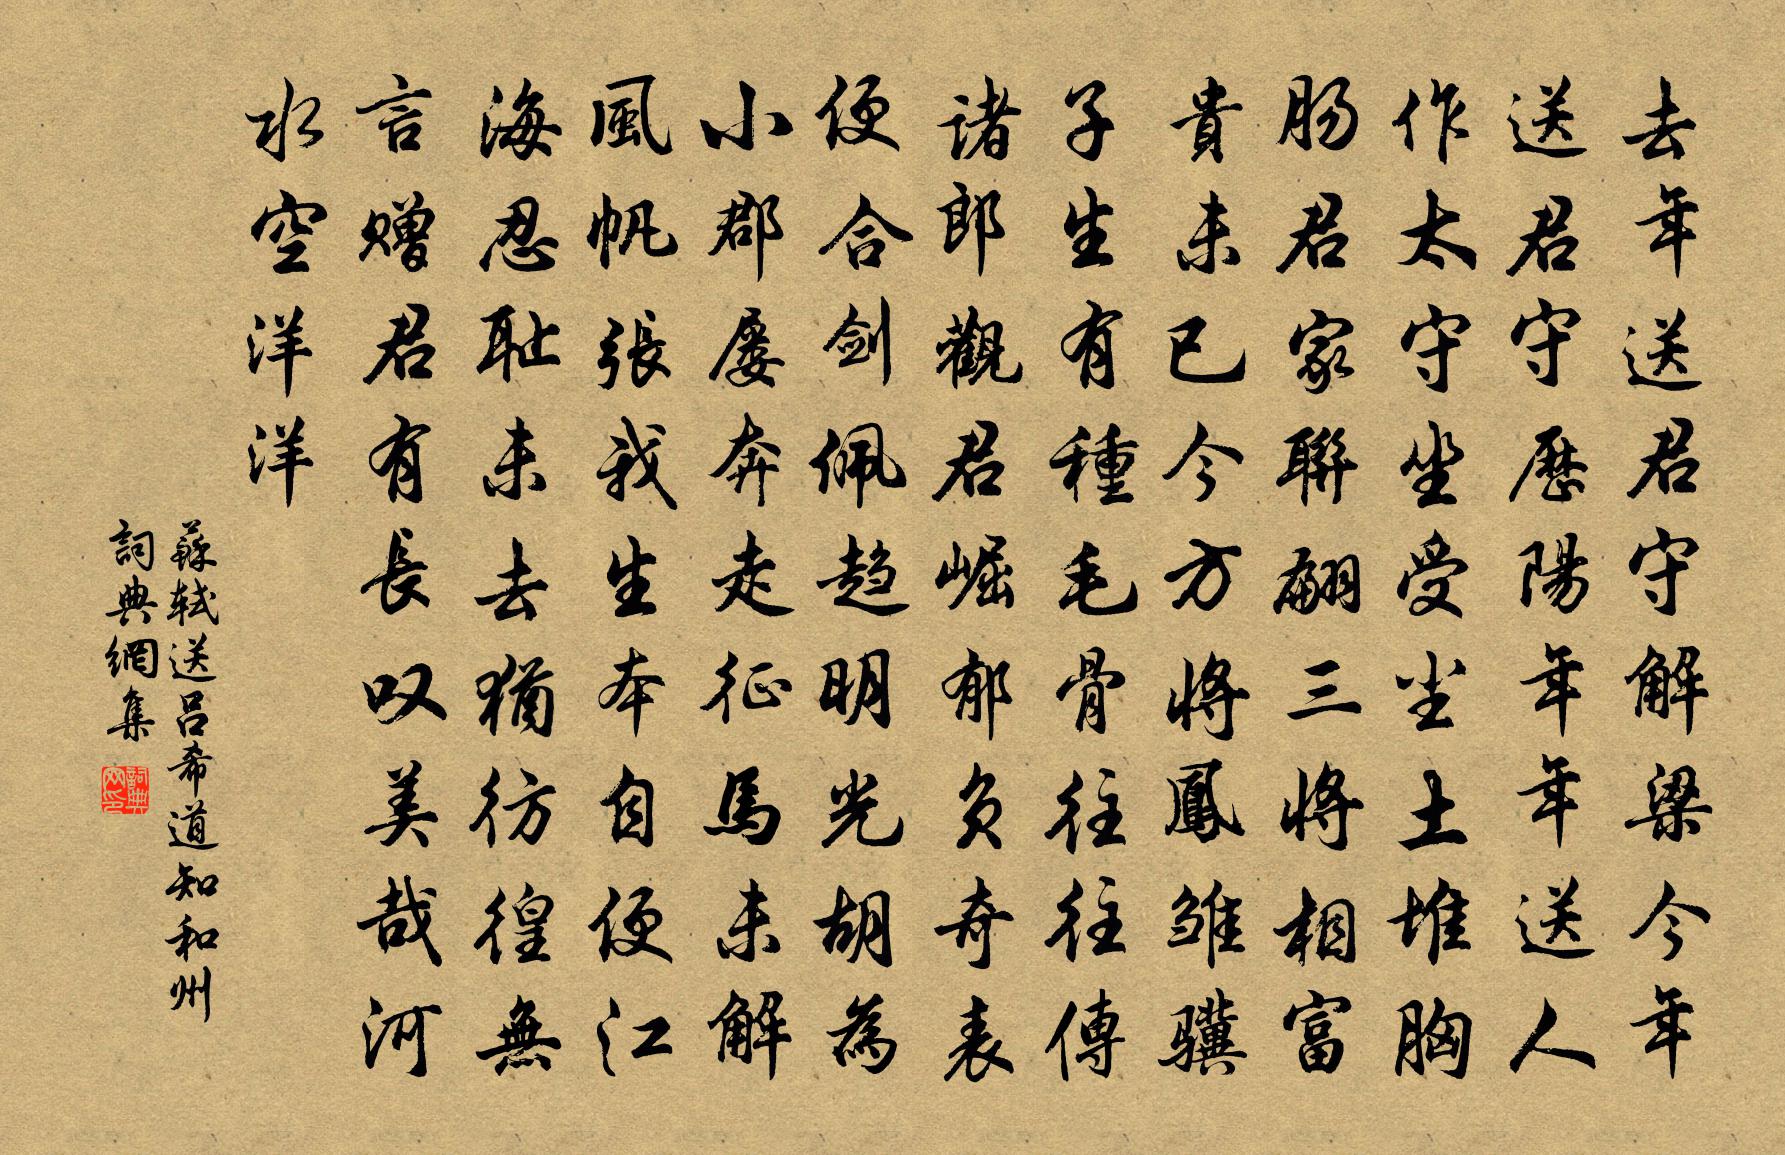 去年送君守解梁今年
送君守歷陽年年送人
作太守坐受尘土堆胸
肠君家聯翩三將相富
貴未已今方將鳳雏骥
子生有種毛骨往往傳
诸郎觀君崛郁負奇表
便合剑佩趋明光胡為
小郡屡奔走征馬未解
風帆張我生本自便江
海忍耻未去猶彷徨無
言赠君有長叹美哉河
水空洋洋
蘇轼送呂希道知和州
詞典網集
詞典网印